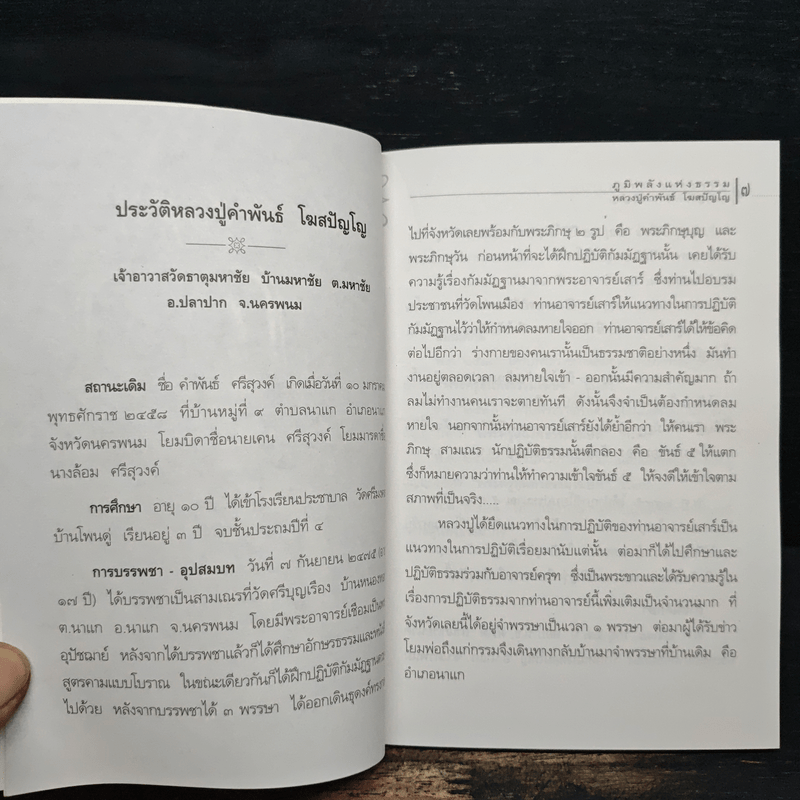 ประวัติหลวงปู่คำพันธ์ โฆสปัญโญ
เจ้าอาวาสวัดธาตุมหาชัย บ้านมหาชัย ต.มหาชัย
อ.ปลาปาก จ.นครพนม
สถานะเดิม ชื่อ คำพันธ์ ศรีสุวงค์ เกิดเมื่อวันที่ ๑๐
พุทธศักราช ๒๔๕๘ ที่บ้านหมู่ที่ ๙ ตำบลนาแก อำเภอนาแก
จังหวัดนครพนม โยมบิดาชื่อนายเคน ศรีสุวงค์
นางล้อม ศรีสุวงค์
การศึกษา อายุ ๑๐ ปี ได้เข้าโรงเรียนประชาบาล
บ้านโพนดู่ เรียนอยู่ ๓ ปี จบชั้นประถมปีที่ ๔
การบรรพชา - อุปสมบท วันที่ ๗ กันยายน ๒๔๗๕
๑๗ ปี) ได้บรรพชาเป็นสามเณรที่วัดศรีบุญเรือง
ต.นาแก อ.นาแก จ.นครพนม โดยมีพระอาจารย์เชื่อม
อุปัชฌาย์ หลังจากได้บรรพชาแล้วก็ได้ศึกษาอักษรธรรม
สูตรคามแบบโบราณ ในขณะเดียวกันก็ได้ฝึกปฏิบัติกัมมัฏฐาน
ไปด้วย หลังจากบรรพชาได้ ๓ พรรษา ได้ออกเดินธุดงค์
ภูมิพลังแห่งธรรม
หลวงปู่คำพันธ์ โฆสปัญโญ
๗
ไปที่จังหวัดเลยพร้อมกับพระภิกษุ ๒ รูป คือ พระภิกษุบุญ และ
พระภิกษุวัน ก่อนหน้าที่จะได้ฝึกปฏิบัติกัมมัฏฐานนั้น เคยได้รับ
ความรู้เรื่องกัมมัฏฐานมาจากพระอาจารย์เสาร์ ซึ่งท่านไปอบรม
ประชาชนที่วัดโพนเมือง ท่านอาจารย์เสาร์ให้แนวทางในการปฏิบัติ
กัมมัฏฐานไว้ว่าให้กำหนดลมหายใจออก ท่านอาจารย์เสาร์ได้ให้ข้อคิด
ต่อไปอีกว่า ร่างกายของคนเรานั้นเป็นธรรมชาติอย่างหนึ่ง มันทำ
งานอยู่ตลอดเวลา ลมหายใจเข้า - ออกนั้นมีความสำคัญมาก ถ้า
ลมไม่ทำงานคนเราจะตายทันที ดังนั้นจึงจำเป็นต้องกำหนดลม
หายใจ นอกจากนั้นท่านอาจารย์เสาร์ยังได้ย้ำอีกว่า ให้คนเรา พระ
ภิกษุ สามเณร นักปฏิบัติธรรมนั้นตีกลอง คือ ขันธ์ ๕ ให้แตก
ซึ่งก็หมายความว่าท่านให้ทำความเข้าใจขันธ์ ๕ ให้จงดีให้เข้าใจตาม
สภาพที่เป็นจริง.....
หลวงปู่ได้ยึดแนวทางในการปฏิบัติของท่านอาจารย์เสาร์เป็น
แนวทางในการปฏิบัติเรื่อยมานับแต่นั้น ต่อมาก็ได้ไปศึกษาและ
ปฏิบัติธรรมร่วมกับอาจารย์ครุฑ ซึ่งเป็นพระขาวและได้รับความรู้ใน
เรื่องการปฏิบัติธรรมจากท่านอาจารย์นี้เพิ่มเติมเป็นจำนวนมาก ที่
จังหวัดเลยนี้ได้อยู่จำพรรษาเป็นเวลา ๑ พรรษา ต่อมาผู้ได้รับข่าว
โยมพ่อถึงแก่กรรมจึงเดินทางกลับบ้านมาจำพรรษาที่บ้านเดิม คือ
อำเภอนาแก